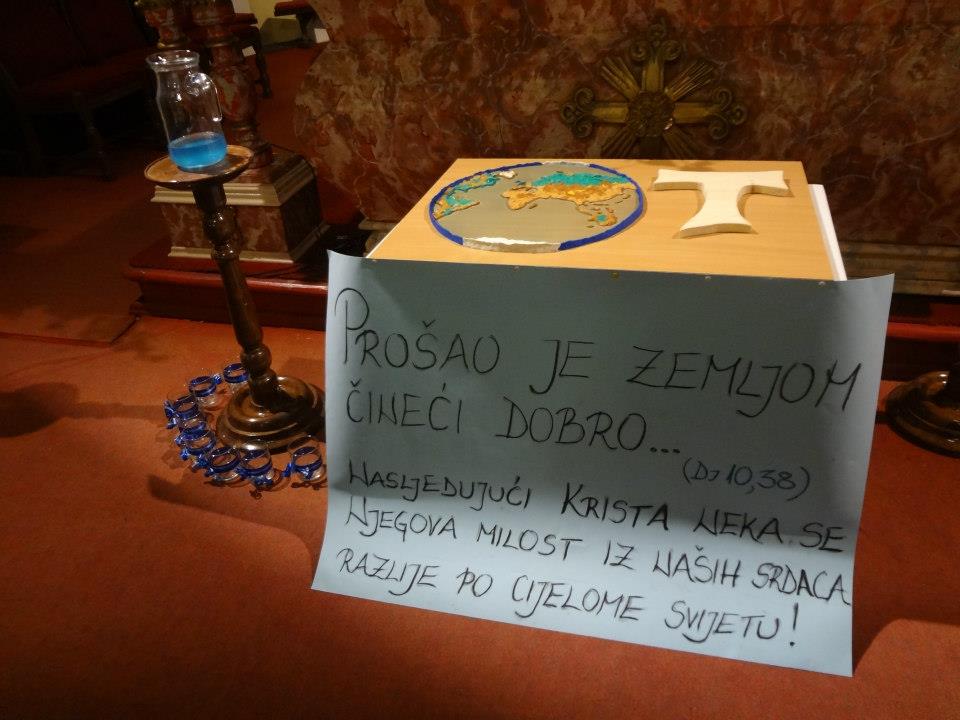 PROŠAO JE ZEMLJOM
ČINEĆI DOBRO...
(DJ 10,38)
NASLJEDUJUĆI KRISTA NEKA SE
NJEGOVA MILOST IZ NAŠIH SRDACA
RAZLIJE PO CIJELOME SVIJETU!